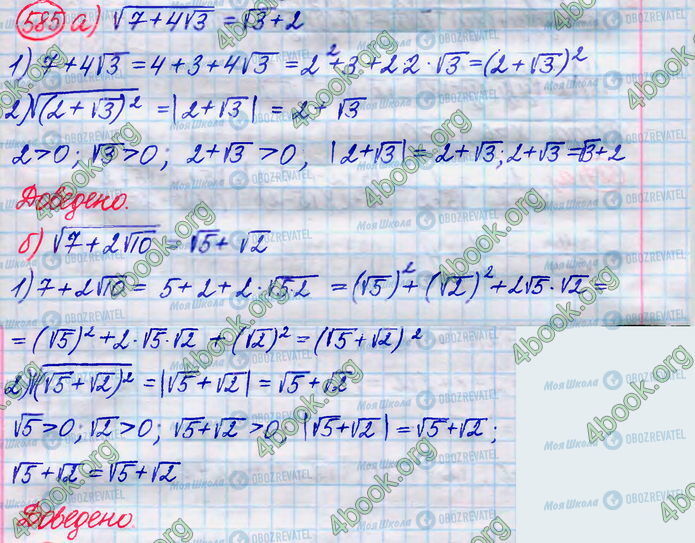 585 а) √(7+4√3) = √3+2
1) 7+4√3 = 4+3+4√3 = 2²+3+2·2·√3 = (2+√3)²
2) √((2+√3)²) = |2+√3| = 2+√3
2>0; √3>0; 2+√3>0, |2+√3| = 2+√3; 2+√3=√3+2
Доведено.
б) √(7+2√10) = √5+√2
1) 7+2√10 = 5+2+2·√5·2 = (√5)²+(√2)²+2√5·√2 =
= (√5)²+2·√5·√2 + (√2)² = (√5+√2)²
2) √((√5+√2)²) = |√5+√2| = √5+√2
√5>0; √2>0; √5+√2>0, |√5+√2| = √5+√2;
√5+√2 = √5+√2
Доведено
4book.org
Моя Школа OBOZREVATEL